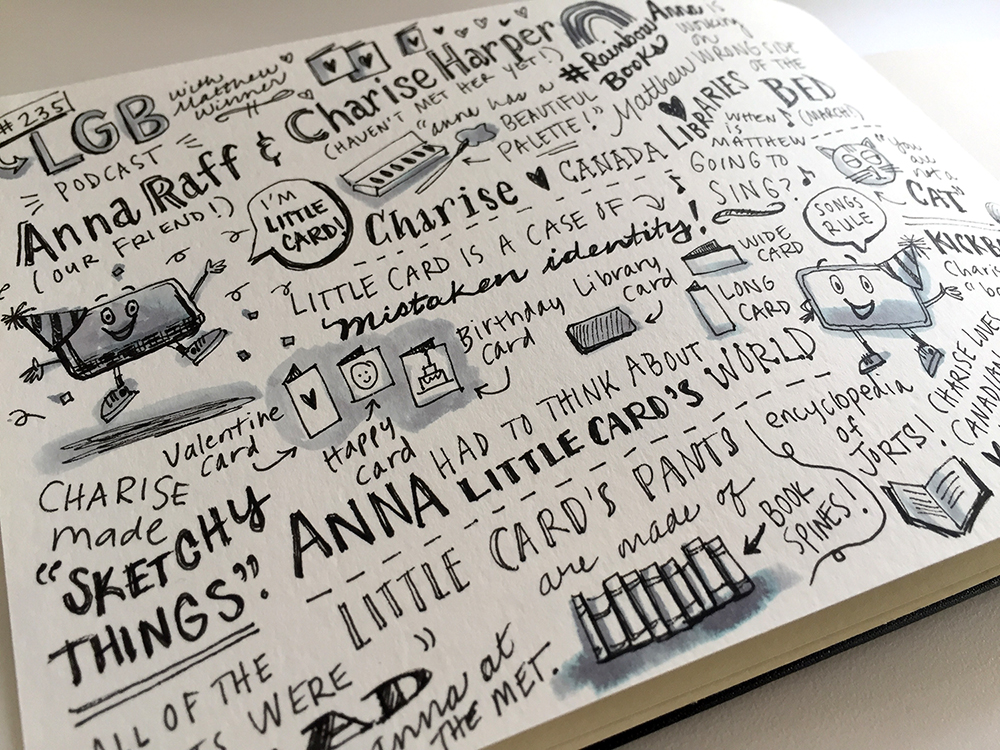 #235
LGB
PODCAST
with
Matthew
Winner
Anna Raff & Charise Harper
(OUR FRIEND!)
(HAVEN'T MET HER YET!)
#Rainbow
Book
Anna is
working
on
WRONG SIDE
OF THE
BED
(MARCH!)
"anne has a
BEAUTIFUL
PALETTE!"
Matthew
LIBRARIES
I'M
LITTLE
CARD!
Charise
CANADA
WHEN
IS
MATTHEW
GOING TO
SING?
"You
are
not a
CAT"
SONGS
RULE
LITTLE CARD IS A CASE OF
Mistaken identity!
WIDE
CARD
LONG
CARD
Library
Card
Birthday
Card
Valentine
Card
Happy
Card
ANNA HAD TO THINK ABOUT
LITTLE CARD'S WORLD
CHARISE
made
"SKETCHY
THINGS."
LITTLE CARD'S PANTS
are made of
BOOK
SPINES!
encyclopedia
of
JORTS!
CHARISE LOVES
CANADIAN
ALL OF THE
WERE
Anna at
THE MET.